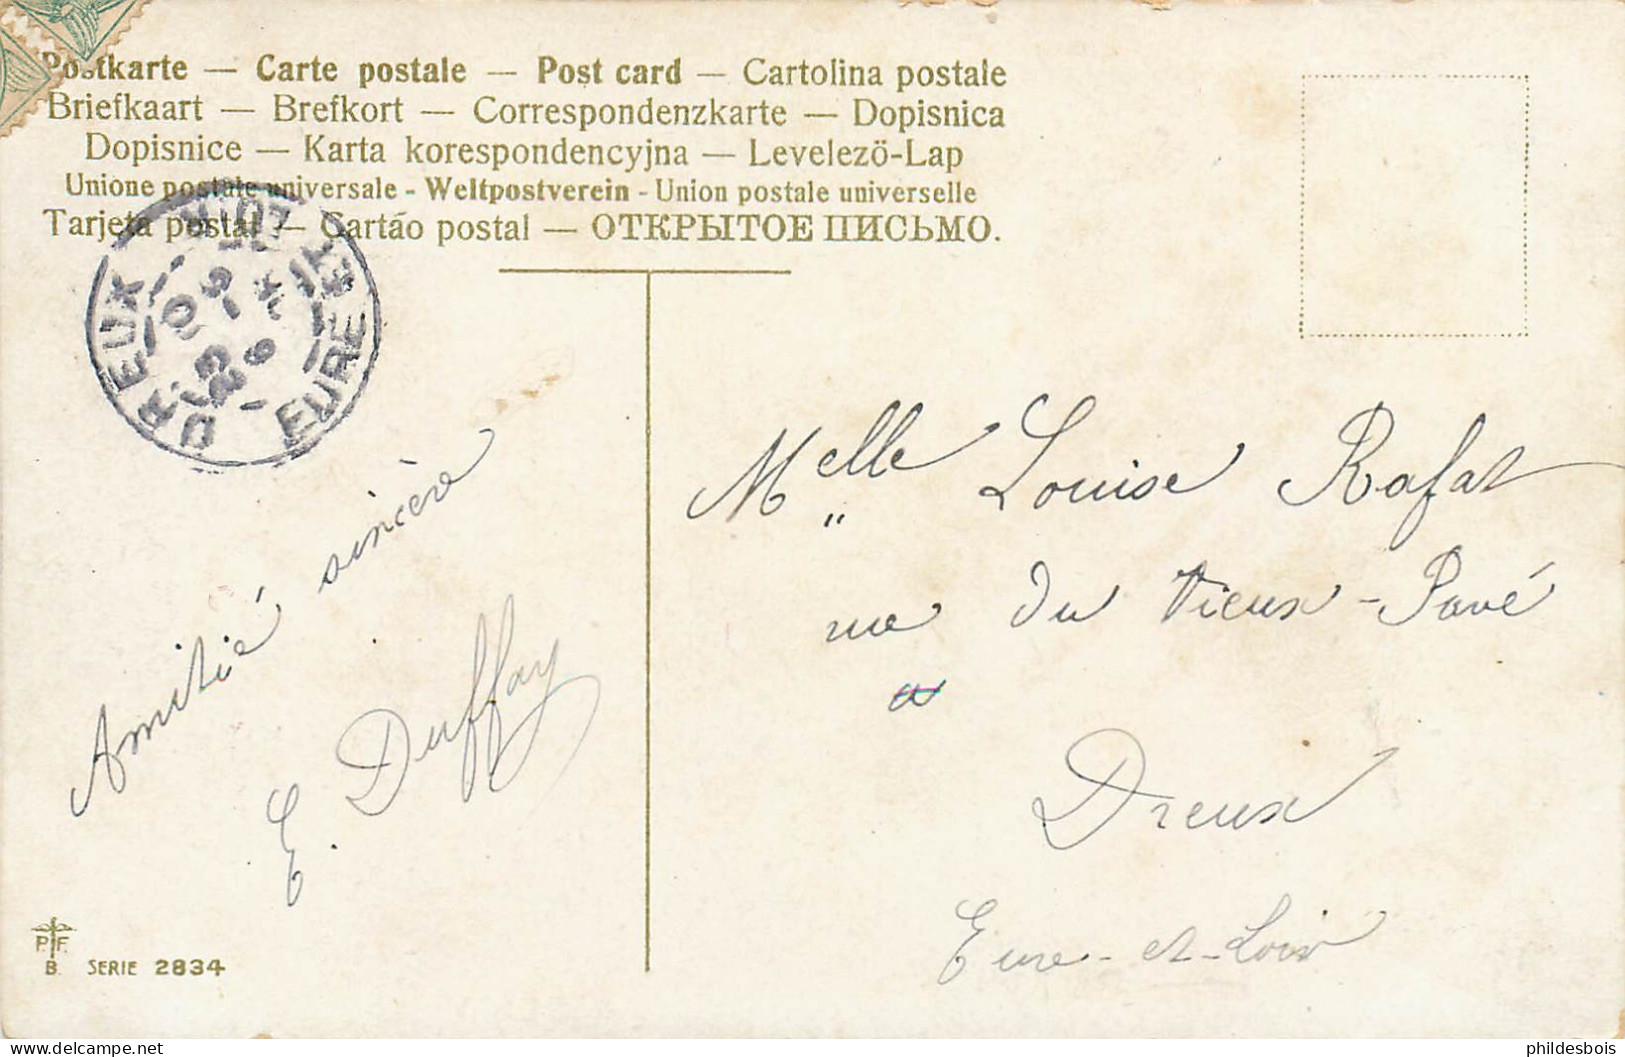 Postkarte — Carte postale — Post card — Cartolina postale
Briefkaart — Brefkort — Correspondenzkarte — Dopisnica
Dopisnice — Karta korespondencyjna — Levelezö-Lap
Unione postale universale - Weltpostverein - Union postale universelle
Tarjeta postal — Cartão postal — ОТКРЫТОЕ ПИСЬМО.
DREUX
EURE ET
Amitié sincère
E. Duffay
Melle Louise Rafat
rue du Vieux-Pavé
a
Dreux
Eure-et-Loir
P. F.
B. SERIE 2834
phildesbois